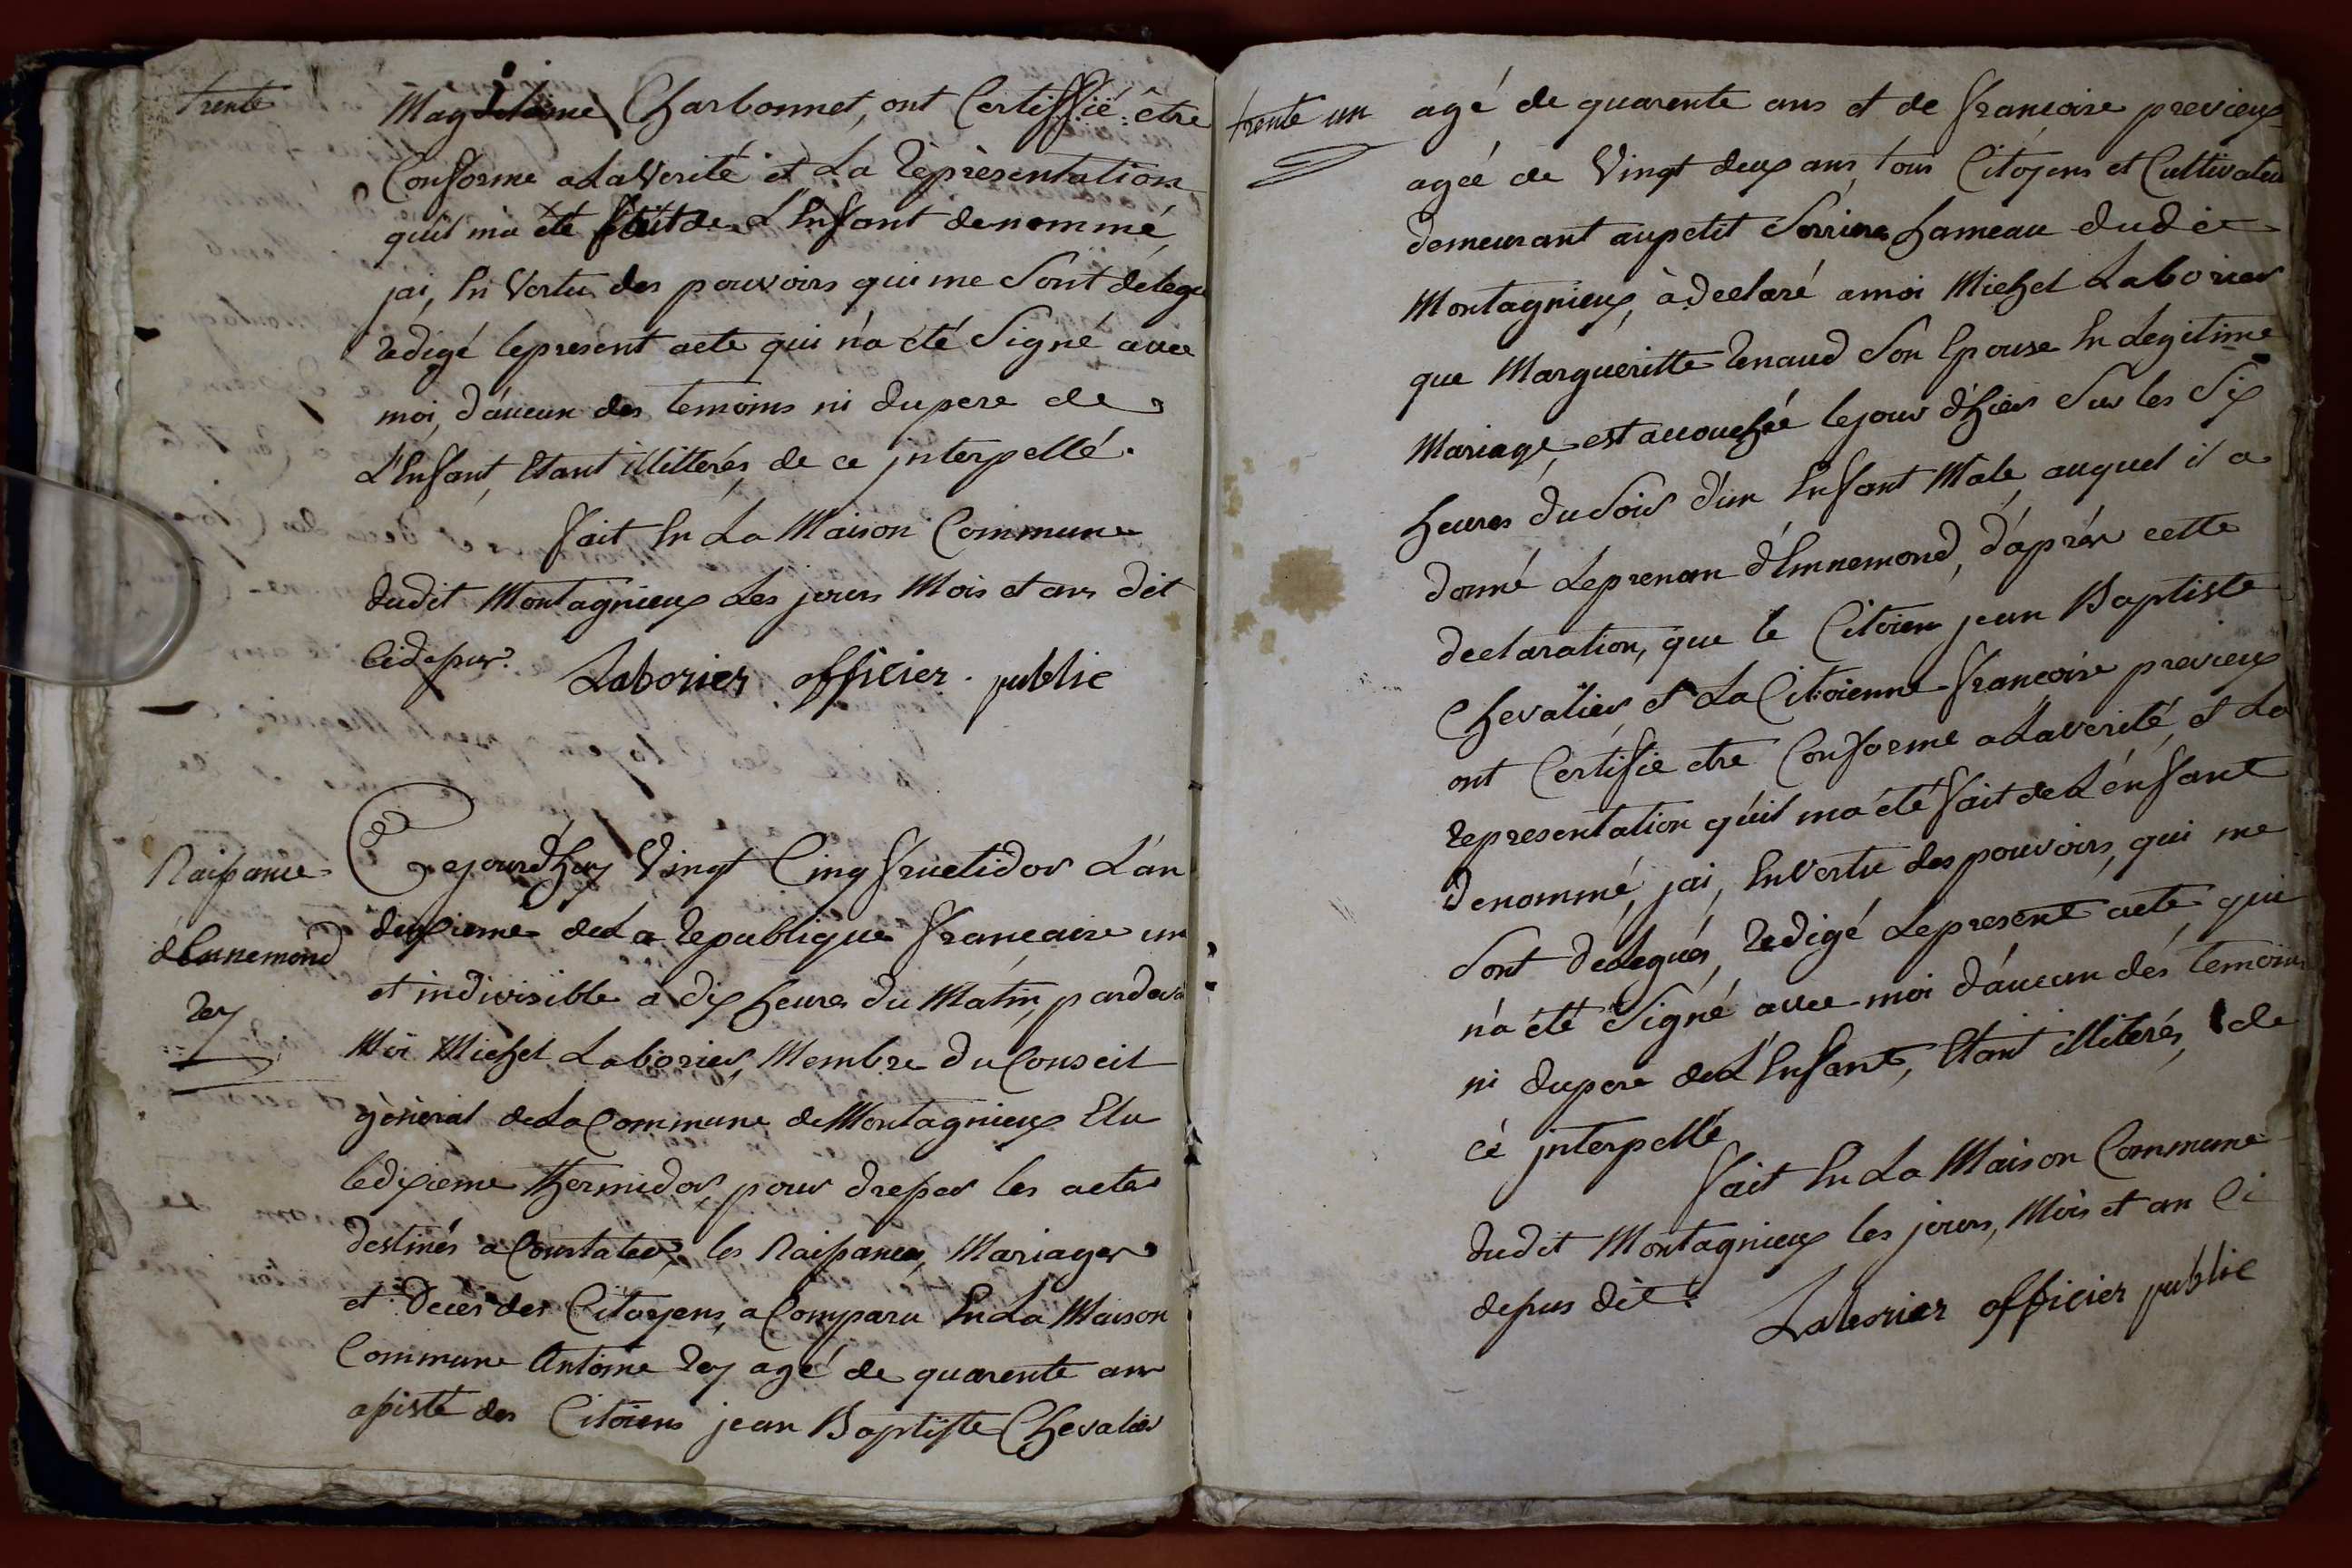 trente
Magdelaine Charbonnet, ont Certiffié être
Conforme a La Verité et La réprèsentation
quil m'a été fait de L'Enfant denommé
jai, En Vertu des pouvoirs qui me Sont délegu
rédigé le present acte qui n'a été Signé avec
moi, d'aucun des temoins ni du pere de
L'Enfant, Etant illitterés, de ce jnterpellé.
fait En La Maison Commune
dudit Montagnieux Les jours Mois et an dit
Cidessus.
Laborier officier public
Naissance
d'Ennemond
rey
Cejourd'huy Vingt Cinq fructidor L'an
deuxieme de La republique francaise un
et indivisible a dix heures du Matin, pardeva
Moi Michel Laborier, Membre du Conseil
gènèral de La Commune de Montagnieux Elu
le dixieme thermidor, pour dresser les actes
destinés a Constater, les Naissances, Mariages
et Deces des Citoyens, a Comparu En La Maison
Commune Antoine rey agé de quarente ans
assisté des Citoiens jean Baptiste Chevalier
trente un
agé de quarente ans et de francoise previeux
ageé de Vingt deux ans, tous Citoyens et Cultivateu
demeurant au petit Serrine hameau dudit
Montagnieux, à declaré a moi Michel Laborier
que Margueritte renaud Son Epouse En Legitime
Mariage, est accouchée le jour d'hier Sur les Six
heures du Soir d'un Enfant Male, auquel il a
donné Le prenom d'Ennemond, d'aprés cette
declaration, que le Citoien jean Baptiste
Chevalier, et La Citoienne francoise previeux
ont Certifie etre Conforme a La verité, et La
representation qu'il m'a été fait de L'énfant
denommé, jai, En Vertu des pouvoirs, qui me
Sont délegués, redigé Le present acte, qui
n'a été Signé avec moi d'aucun dés temoins
ni du pere de L'Enfant, Etant illiterés, de
cé jnterpellé
fait En La Maison Commune
dudit Montagnieux les jours, Mois et an Ci
dessus dit.
Laborier officier public